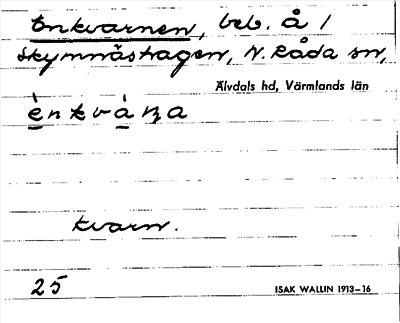 Enkvarnen, beb. å /
Skymnäshagen, N. Råda sn,
Älvdals hd, Värmlands län
kvarn.
25
ISAK WALLIN 1913–16